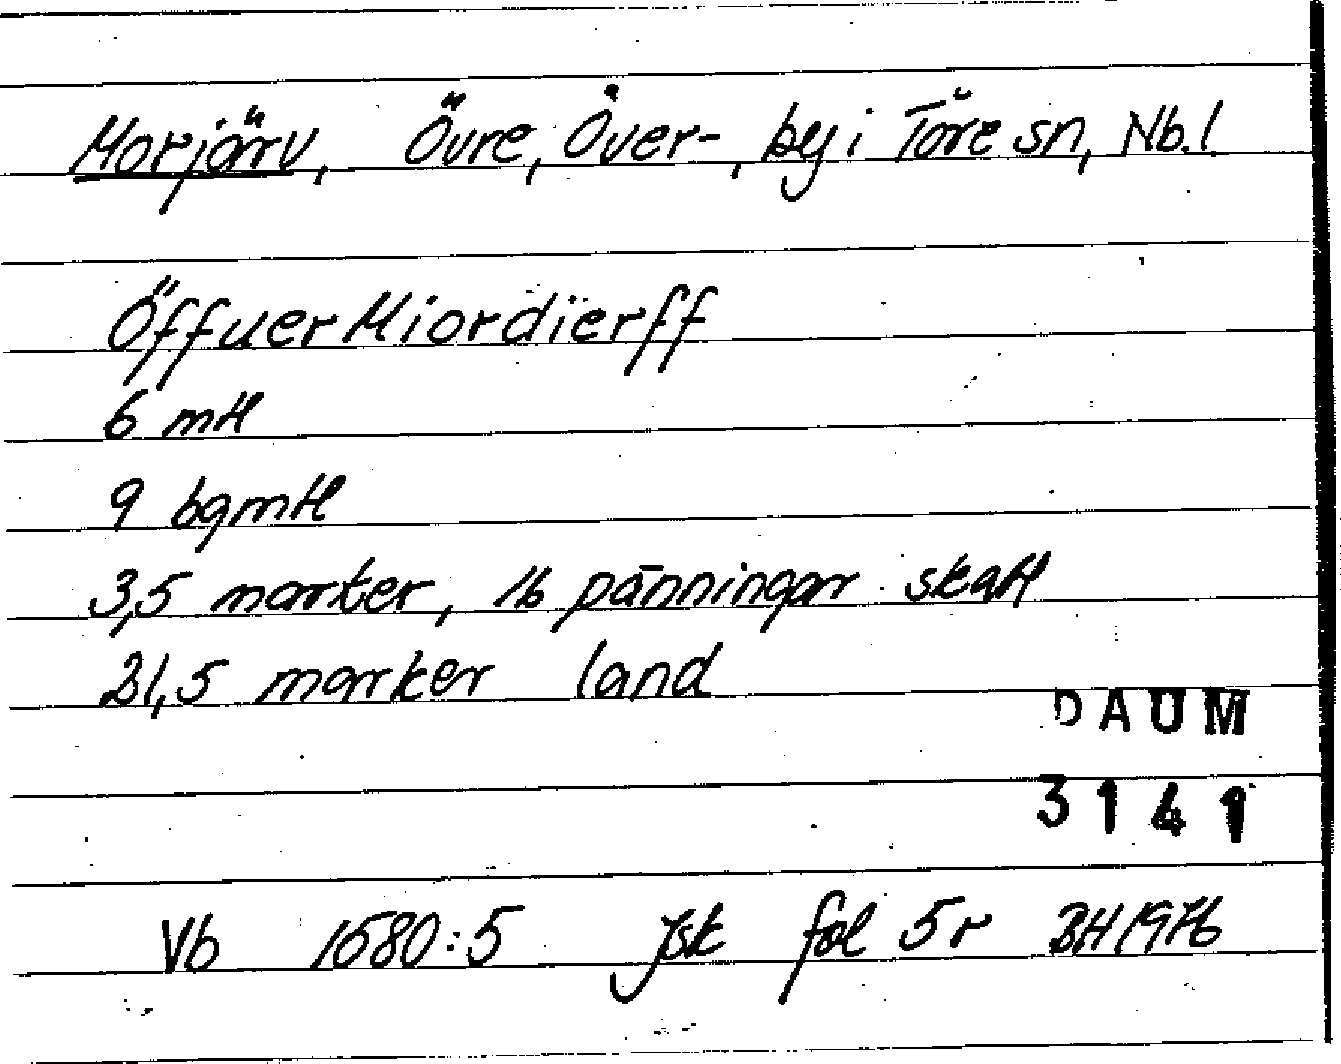 Morjärv, Övre, Över-, by i Töre sn, Nb. l.
Öffuer Miordierff
6 mtl
9 bgmtl
3,5 marker, 16 pänningar skatt
21,5 marker land
DAUM
3141
Vb 1580:5 Jsk fol 5r BH 1976